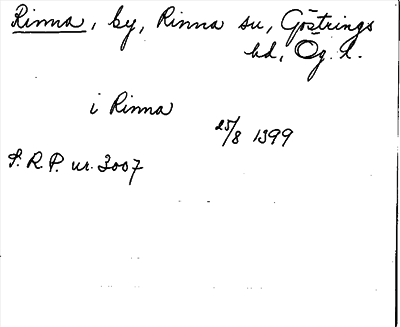 Rinna, by, Rinna sn, Göstrings
hd, Ög. l.
i Rinna
25/8 1399
S.R.P. nr. 3007